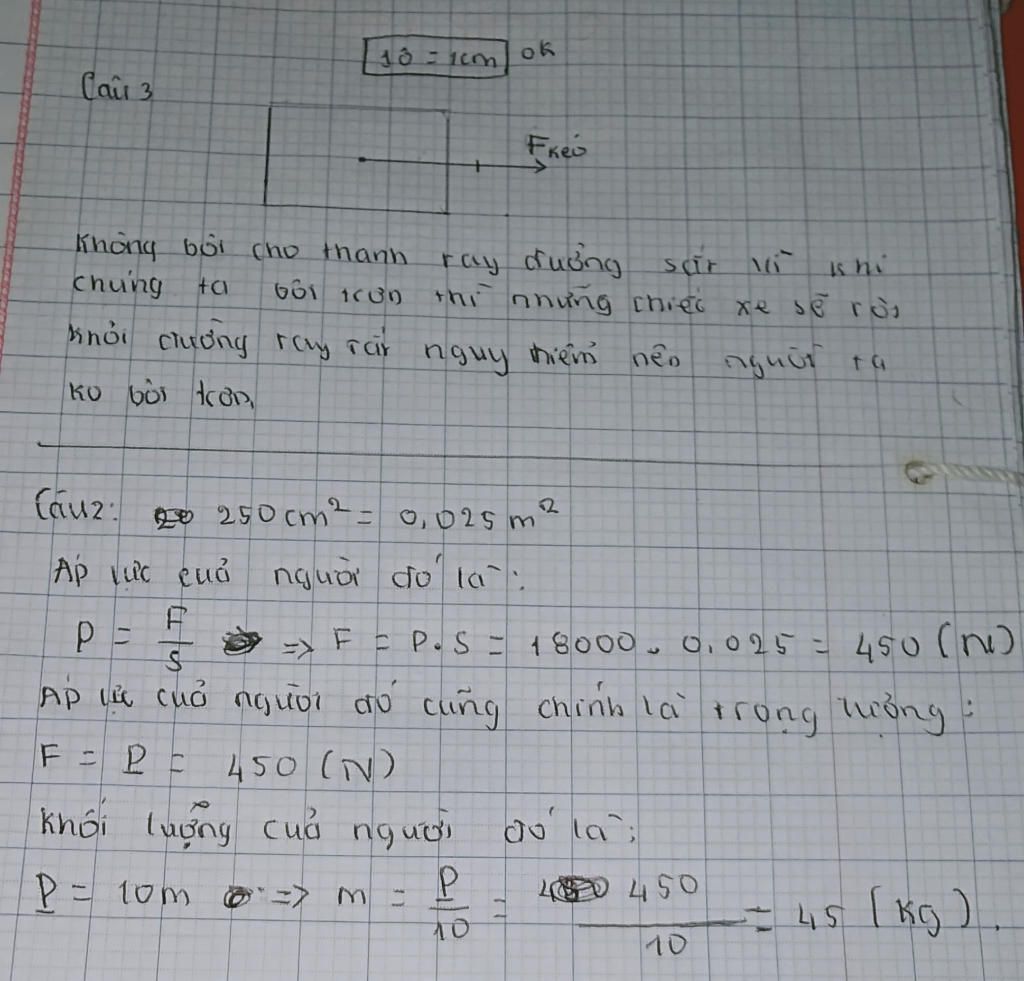 10 = 1cm ok
Câu 3
Fkéo
Không bôi cho thanh ray đường sắt vì khi
chúng ta bôi trơn thì những chiếc xe sẽ rời
khỏi đường ray rất nguy hiểm nên người ta
ko bôi trơn.
Câu 2: 250 cm² = 0,025 m²
Áp lực của người đó là:
P = F/S => F = P.S = 18000. 0,025 = 450 (N)
Áp lực của người đó cũng chính là trọng lượng:
F = P = 450 (N)
Khối lượng của người đó là:
P = 10m => m = P/10 = 450/10 = 45 (kg).